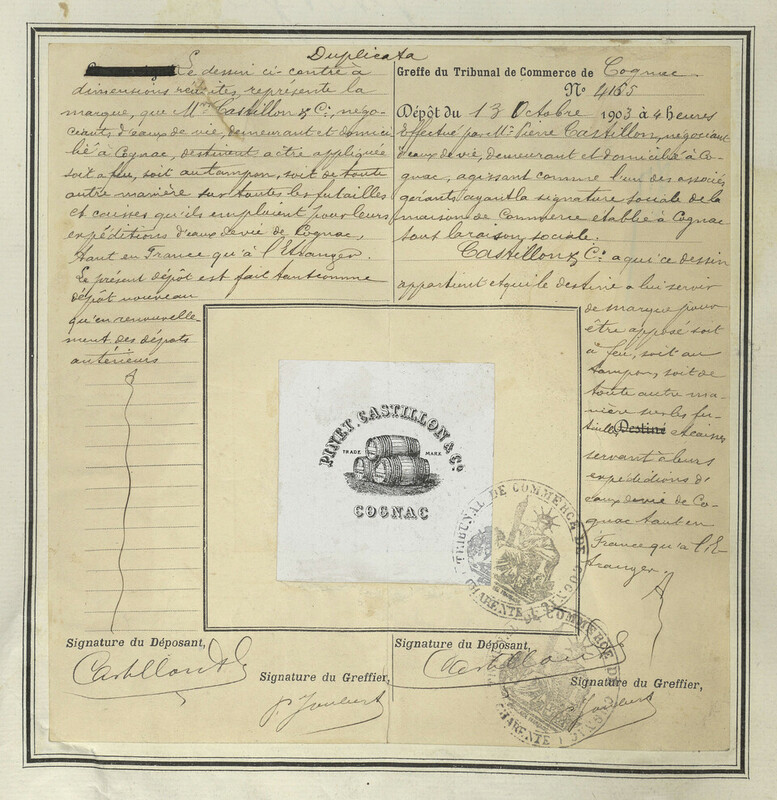 Duplicata
Le dessin ci-contre à
dimensions réduites, représente la
marque, que Mrs Castillon & Cie, négo-
ciants d'eaux de vie, demeurant et domici
lié à Cognac, destinent à être appliquée
soit à feu, soit au tampon, soit de toute
autre manière sur toutes les futailles
et caisses qu'ils emploient pour leurs
expéditions d'eaux de vie de Cognac,
tant en France qu'à l'Etranger.
Le présent dépôt est fait tant comme
dépôt nouveau
qu'en renouvelle-
ment des dépôts
antérieurs
Signature du Déposant,
Castillon & Cie
Signature du Greffier,
P. Joubert
Greffe du Tribunal de Commerce de Cognac
No 4165
Dépôt du 13 Octobre 1903 à 4 heures
Effectué par Mr Pierre Castillon, négociant
d'eaux de vie, demeurant et domicilié à Co-
gnac, agissant comme l'un des associés
gérants ayant la signature sociale de la
maison de Commerce établie à Cognac
sous la raison sociale.
Castillon & Cie à qui ce dessin
appartient et qui le destine à lui servir
de marque pour
être apposé soit
à feu, soit au
tampon, soit de
toute autre ma-
nière sur les fu-
tailles Destiné et caisses
servant à leurs
expéditions d'
eaux de vie de Co-
gnac tant en
France qu'à l'E-
tranger.
PINET, CASTILLON & Co.
TRADE MARK
COGNAC
TRIBUNAL DE COMMERCE DE COGNAC
CHARENTE
Signature du Déposant,
Castillon & Cie
Signature du Greffier,
P. Joubert
TRIBUNAL DE COMMERCE DE COGNAC
CHARENTE